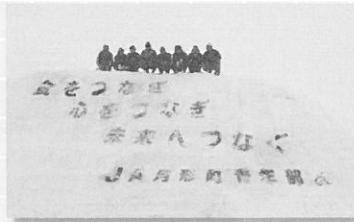 食をつなぎ
心をつなぎ
未来へつなぐ
JA月形町青年部